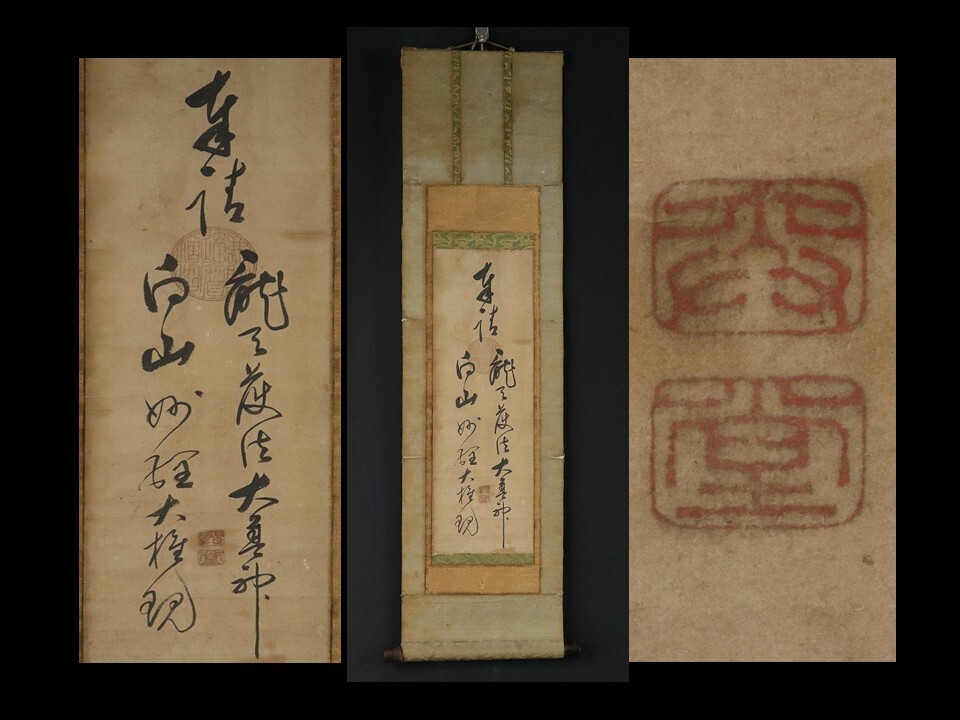 奉請
龍天護法大善神
白山妙理大権現